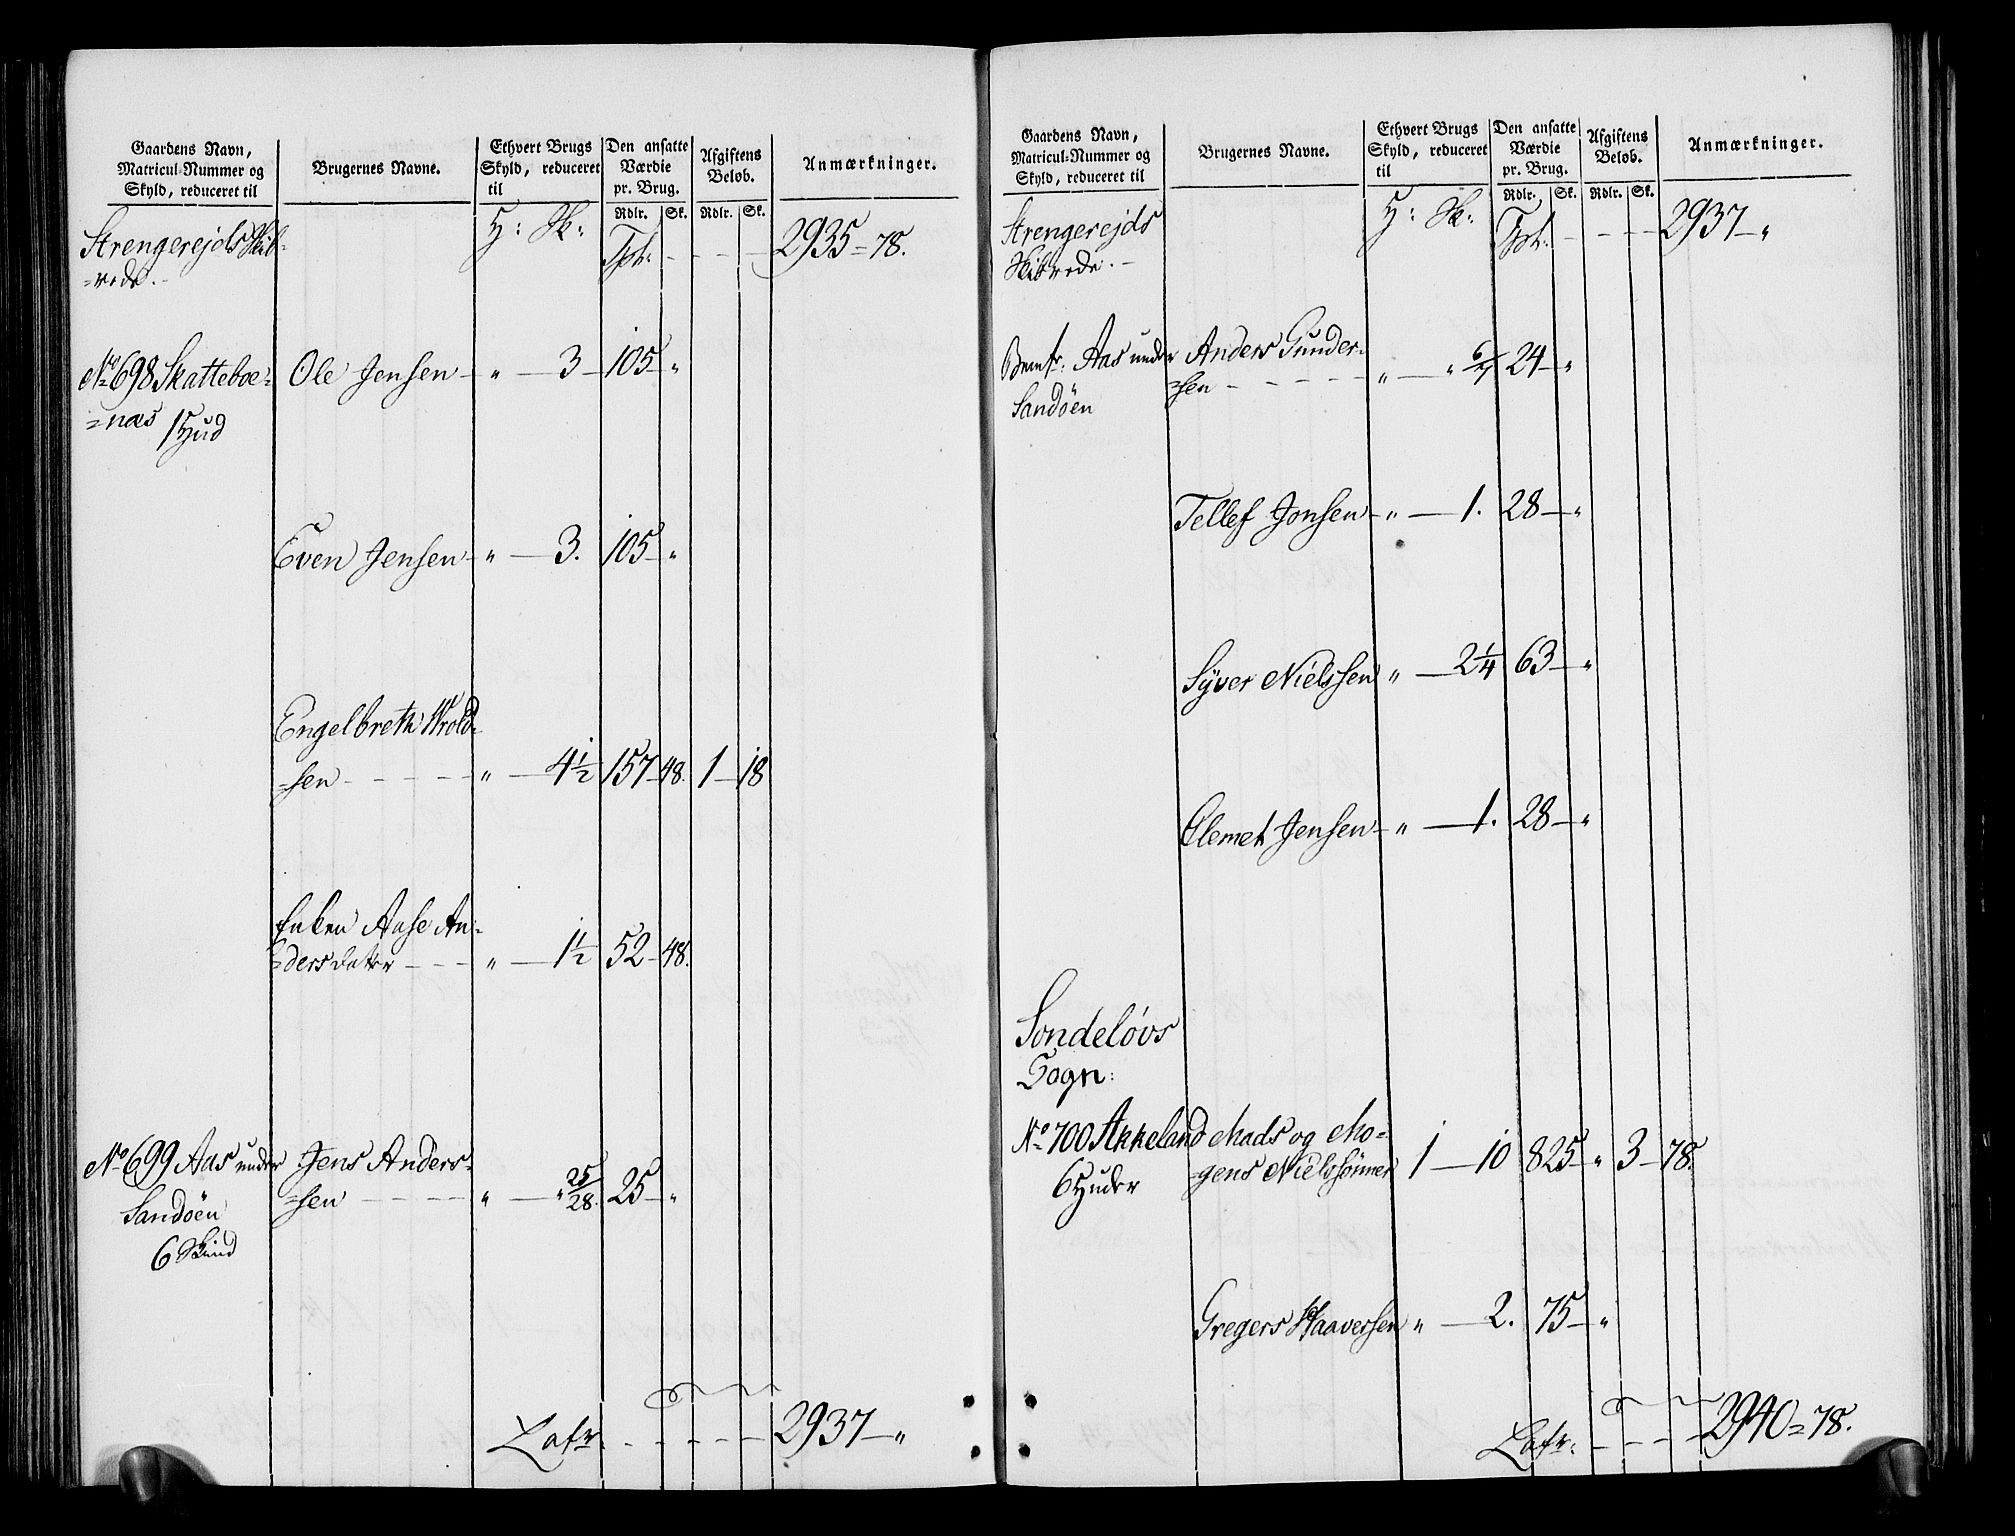 Gaardens Navn,
Matricul-Nummer og
Skyld, reduceret til
Brugernes Navne.
Ethvert Brugs
Skyld, reduceret
til
Den ansatte
Værdie
pr. Brug.
Rdlr. Sk.
Afgiftens
Beløb.
Rdlr. Sk.
Anmærkninger.
Strengerejds Skib-
=rede.
H: Sk:
Tpt. - - - - 2935=78.
No 698 Skatteboe- Ole Jensen - „ - 3 - 105 - „
=næs 1 Hud
Even Jensen - „ - 3. 105 - „
Engelbreth Wrold-
=sen - - - - „ - 4½ 157 - 48. 1 - 18
Enken Aase An-
=dersdatter - - - „ - 1½ 52 - 48.
No 699 Aas under Jens Anders-
=sen - - - - „ - „ 25/28. 25 - „
Sandöen
6 Skind
Latr. - - - - 2937 - „
Gaardens Navn,
Matricul-Nummer og
Skyld, reduceret til
Brugernes Navne.
Ethvert Brugs
Skyld, reduceret
til
Den ansatte
Værdie
pr. Brug.
Rdlr. Sk.
Afgiftens
Beløb.
Rdlr. Sk.
Anmærkninger.
Strengerejds
Skibrede. -
H: Sk:
Tpt. - - - - 2937 - „
Aas under Anders Gunder-
=sen - - - - „ - „ 6/7 24 - „
Sandöen
Tellef Jonsen - „ - 1. 28 - „
Syver Nielssen „ - 2¼ 63 - „
Clemet Jensen - „ - 1. 28 - „
Sondelövs
Sogn:
No 700 Akkeland Mads og Mo-
=gens Nielssönner 1 - 10 825 - „ 3 - 78.
6 Huder
Gregers Haaversen „ - 2. 75 - „
Latr. - - - - 2940=78.